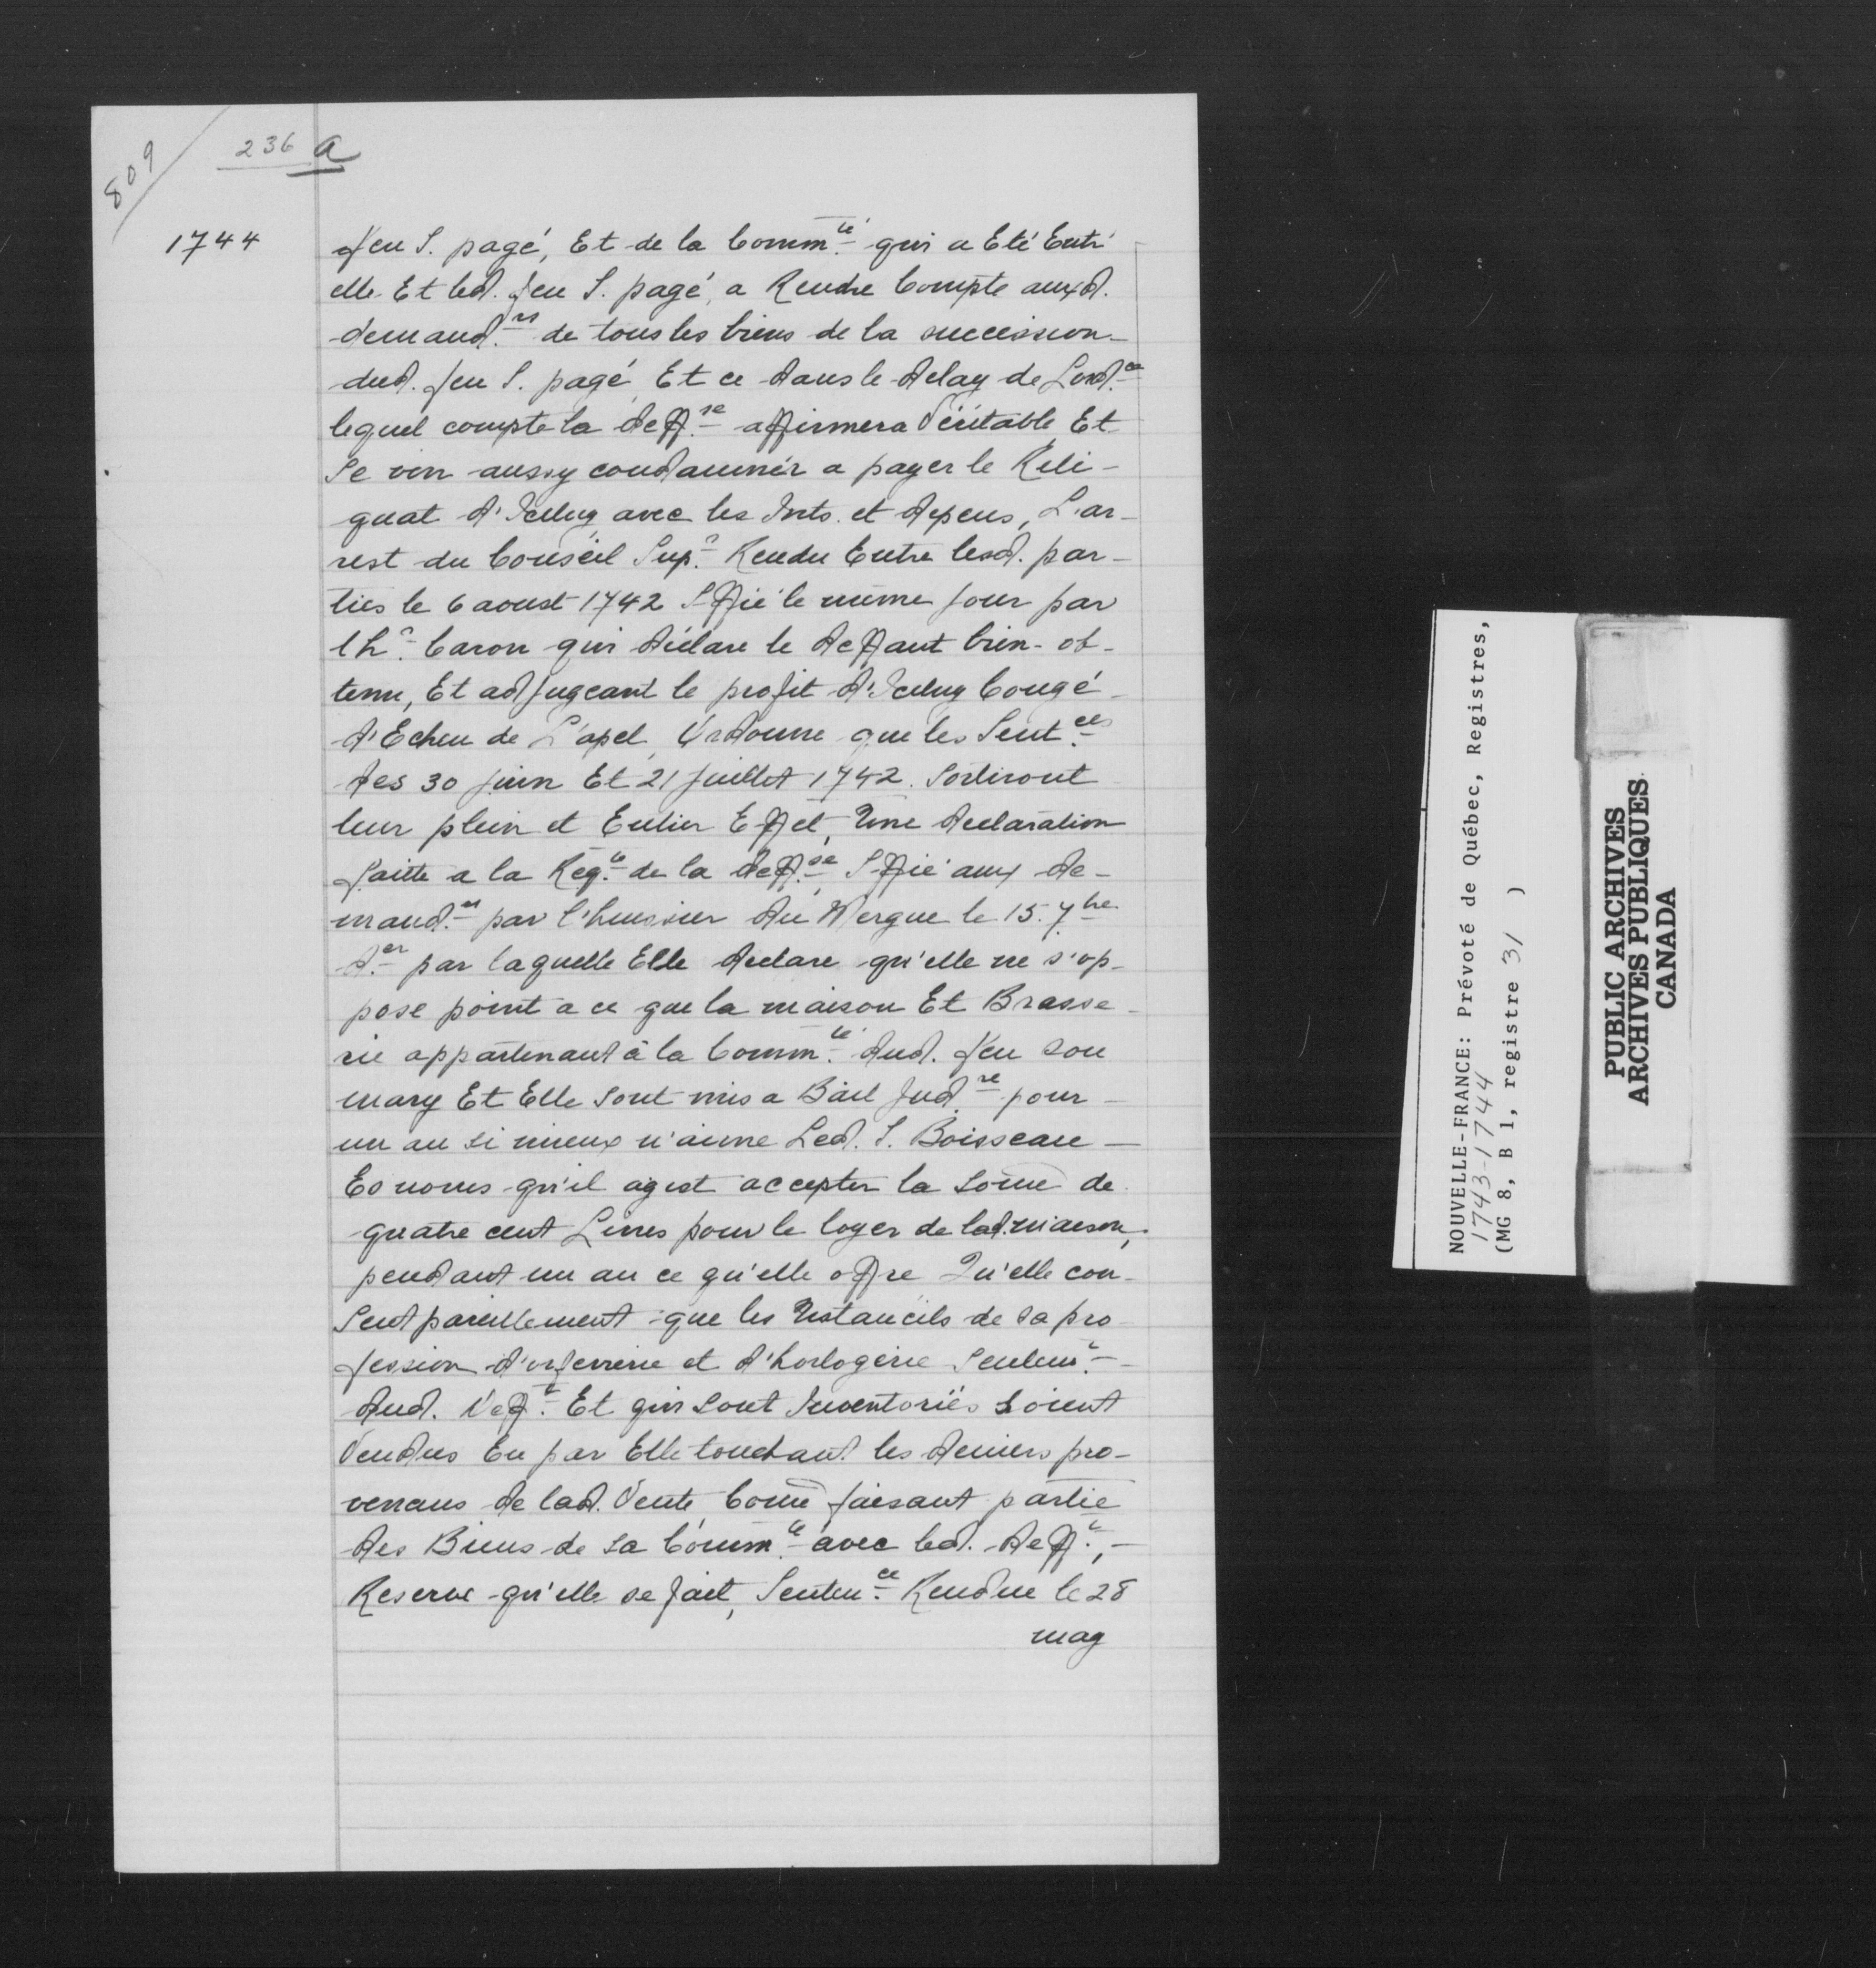 809
236 a
1744
feu S. pagé, Et de la Comm.té qui a Eté Entr'
elle Et led. feu S. pagé, a Rendre Compte auxd.
demand.rs de tous les biens de la succession
dud. feu S. pagé, Et ce dans le delay de Lord.ce
lequel compte la deff.se affirmera Véritable, Et
Se voir aussy condamnér a payer le Reli-
quat d'Iceluy avec les Ints. et depens, L'ar-
rest du Conseil Sup.r Rendu Entre lesd. par-
ties le 6 aoust 1742 Sffié le même jour par
lh.r Caron qui déclare le deffaut bien ob-
tenu, Et adjugeant le profit d'Iceluy Congé
d'Echeu de L'apel, Ordonne que les Sent.ces
des 30 juin Et 21 juillet 1742. Sortiront
leur plein et Entier Effet, Une declaration
faitte a la Req.te de la deff.se, Sffié aux de-
mand.rs par l'huissier du Mergue le 15. 7bre
d.er par laquelle Elle declare qu'elle ne s'op-
pose point a ce que la maison Et Brasse-
rie appartenant à la Comm.té dud. feu son
mary Et Elle sont mis a Bail Jud.re pour
un an si mieux n'aime Led. S. Boisseau
Es noms qu'il agist accepter la some de
quatre cent Livres pour le loyer de lad. maison,
pendant un an ce qu'elle offre Qu'elle con-
Sent pareillement que les Ustancils de sa pro
fession d'orfevrerie et d'horlogerie Seulem.t
dud. Deff.t Et qui sont Inventoriés soient
Vendus En par Elle touchant les deniers pro-
venans de lad. Vente Come faisant partie
des Biens de sa Comm.té avec led. deff.t,
Reserve qu'elle se fait, Senten.ce Rendue le 28
may
NOUVELLE-FRANCE: Prévoté de Québec, Registres,
1743-1744
(MG 8, B 1, registre 31 )
PUBLIC ARCHIVES
ARCHIVES PUBLIQUES
CANADA